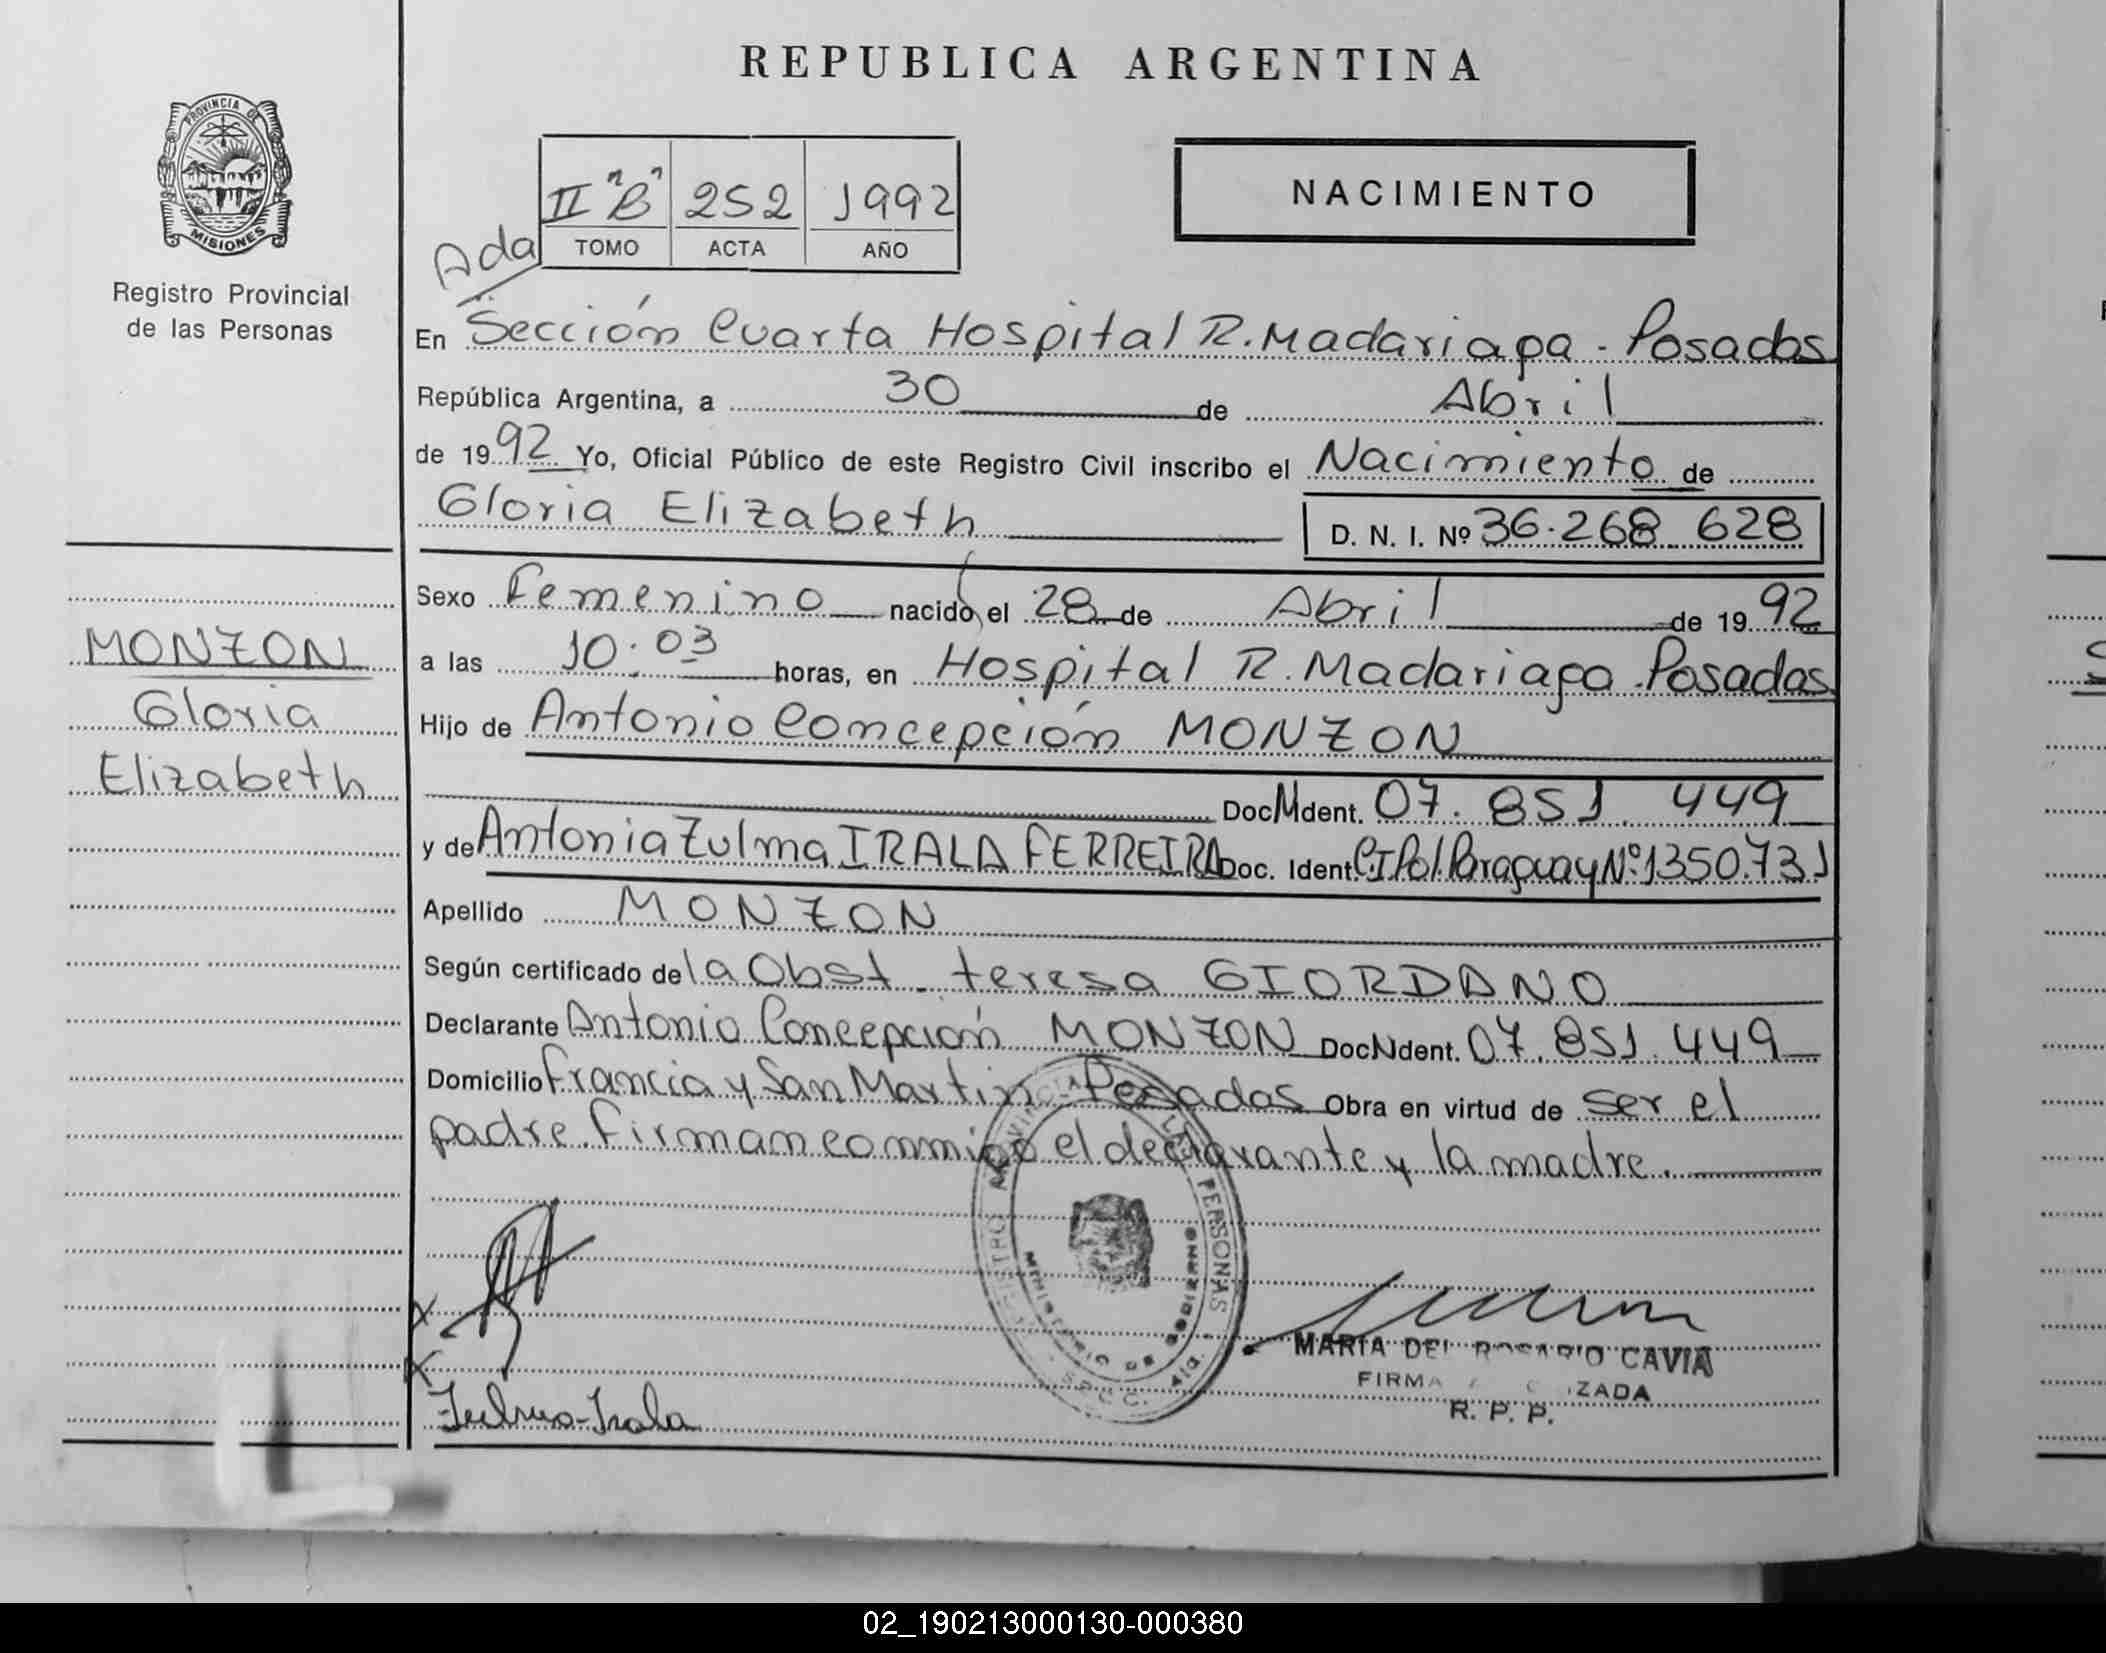 REPUBLICA ARGENTINA
PROVINCIA DE
MISIONES
Registro Provincial
de las Personas
II "B" 252 1992
TOMO ACTA AÑO
NACIMIENTO
Ada
En Sección Cuarta Hospital R. Madariaga - Posadas
República Argentina, a 30 de Abril
de 1992 Yo, Oficial Público de este Registro Civil inscribo el Nacimiento de
Gloria Elizabeth D. N. I. Nº 36.268.628
Sexo Femenino nacido el 28 de Abril de 1992
a las 10:03 horas, en Hospital R. Madariaga - Posadas
Hijo de Antonio Concepción MONZON
Doc. Ident. 07.851.449
y de Antonia Zulma IRALA FERREIRA Doc. Ident. C.I. Pol. Paraguay Nº 1350.731
Apellido MONZON
Según certificado de la Obst. teresa GIORDANO
Declarante Antonio Concepción MONZON Doc. Ident. 07.851.449
Domicilio Francia y San Martin Posadas Obra en virtud de ser el
padre. Firman conmigo el declarante y la madre.
MONZON
Gloria
Elizabeth
PERSONAS
MINISTERIO DE GOBIERNO
MARIA DEL ROSARIO CAVIA
FIRMA
R. P. P.
Irala
02_190213000130-000380